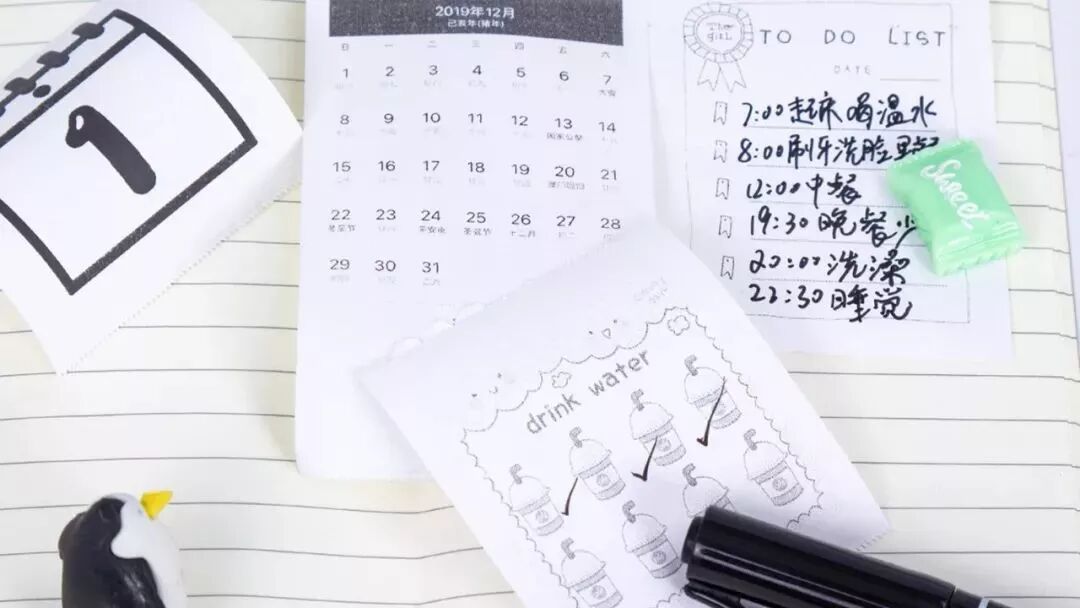 1
2019年12月
己亥年(猪年)
日 一 二 三 四 五 六
1 2 3 4 5 6 7
大雪
8 9 10 11 12 13 14
国家公祭
15 16 17 18 19 20 21
澳门回归
22 23 24 25 26 27 28
冬至节 平安夜 圣诞节 十二月 初二
29 30 31
初六
The girl
TO DO LIST
DATE
7:00起床喝温水
8:00刷牙洗脸早餐
12:00中餐
19:30晚餐少
20:00洗澡
22:30睡觉
Sweet
drink water